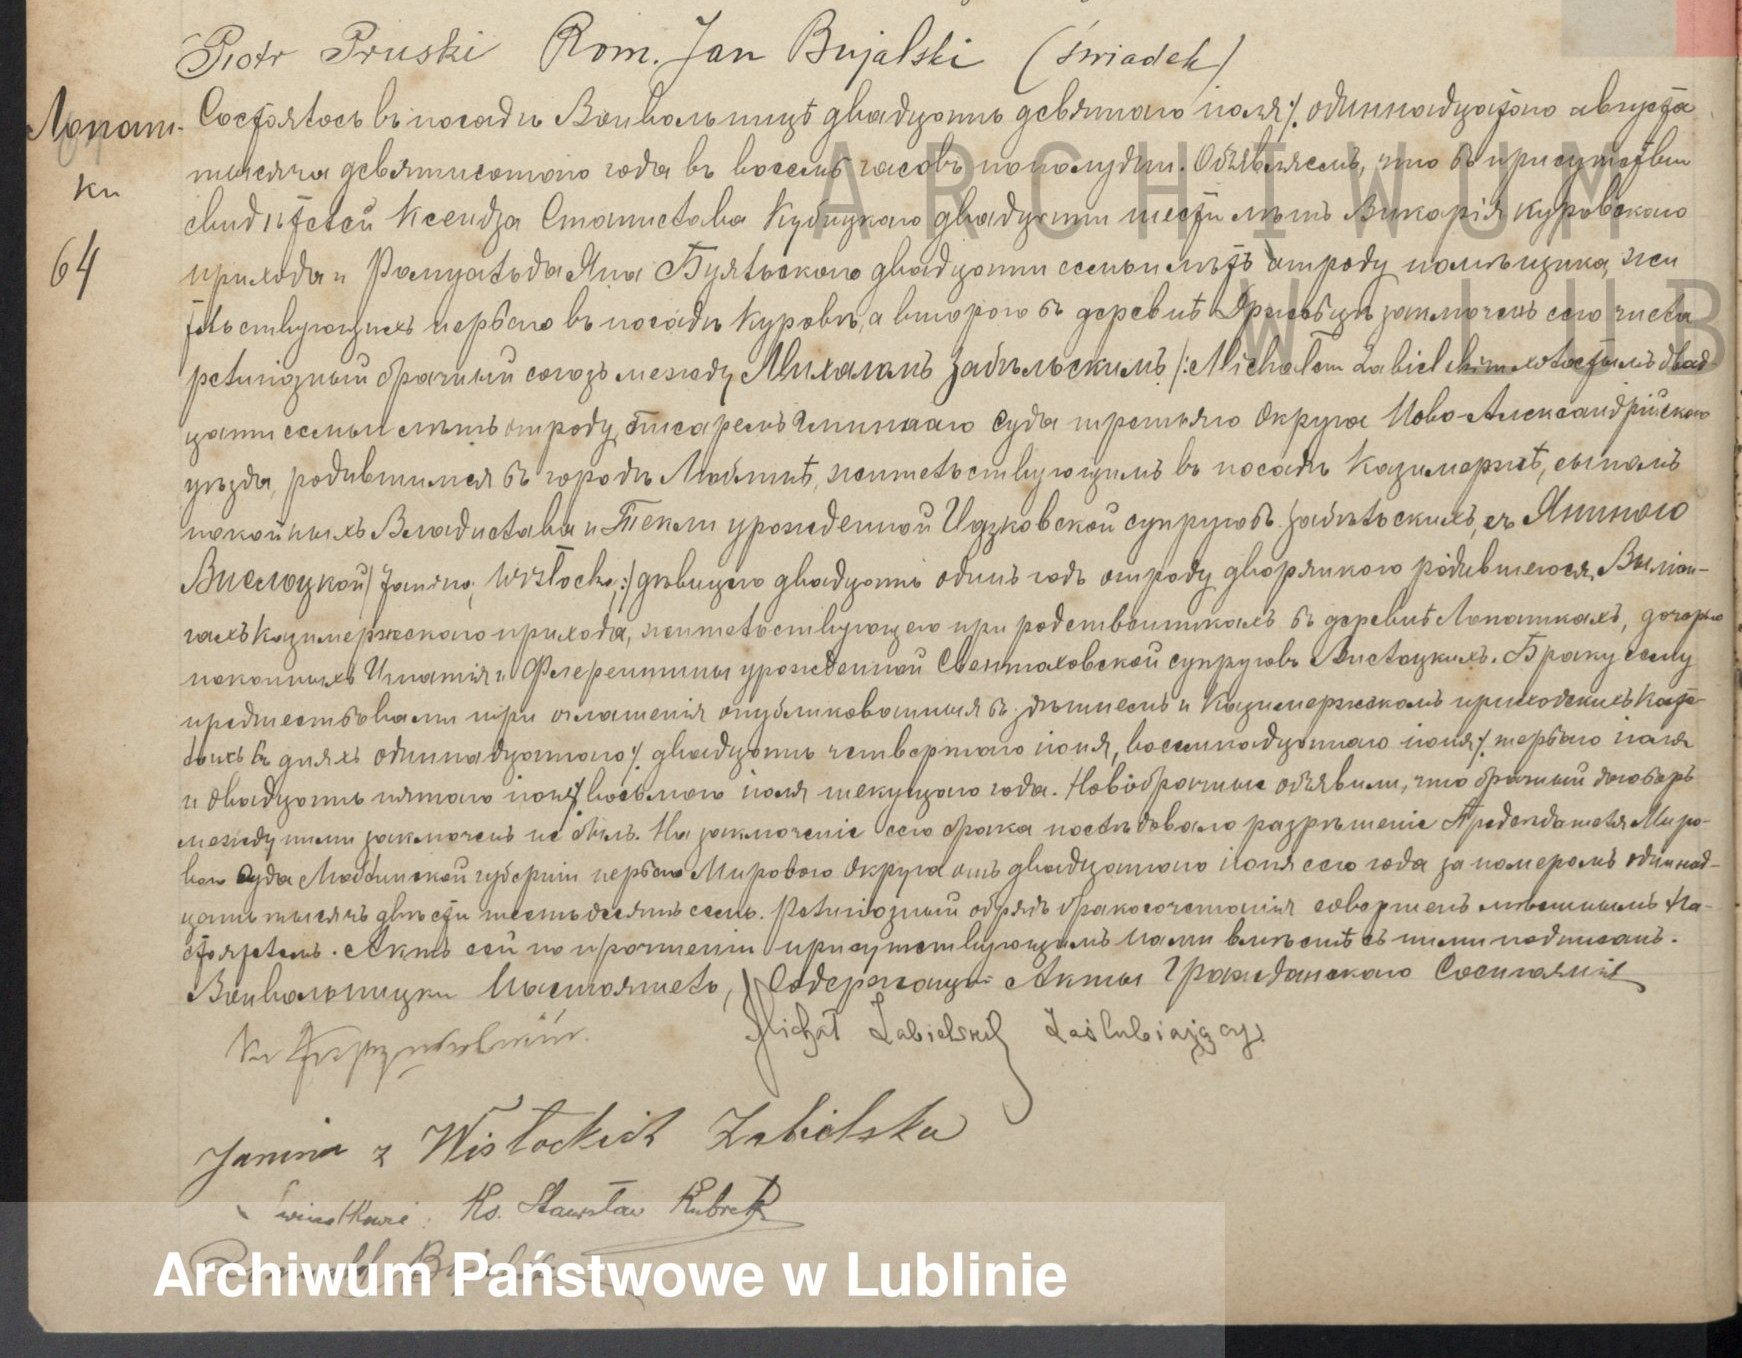 Piotr Pruski Rom. Jan Bujalski (świadek)
Лопат-
ки
64
Состоялось въ посадѣ Вонвольницѣ двадцать девятаго іюля /. одиннадцатаго августа
тысяча девятисотаго года въ восемь часовъ пополудни. Объявляемъ, что въ присутствіи
свидѣтелей Ксендза Станислава Кубицкаго двадцати шести лѣтъ Викарія Куровскаго
прихода и Ромуальда Яна Буяльскаго двадцати семи лѣтъ отроду помѣщика, жи
тельствующихъ перваго въ посадѣ Куровѣ, а второго въ деревнѣ заключенъ сего числа
религіозный брачный союзъ между Михаломъ Забѣльскимъ /: Michałem Zabielskim холостымъ двад-
цати семи лѣтъ отроду, Писаремъ Гминнаго Суда третьяго Округа Ново-Александрійскаго
уѣзда, родившимся въ городѣ Люблинѣ, жительствующимъ въ посадѣ Казимержѣ, сыномъ
покойныхъ Владислава и Текли урожденной Идзковской супруговъ Забѣльскихъ, съ Яниною
Вислоцкой /Janiną Wisłocką :/ дѣвицею двадцать одинъ годъ отроду дворянкою родившеюся въ
гахъ Казимержскаго прихода, жительствующею при родственникахъ въ деревнѣ Лопаткахъ, дочерью
покойныхъ Игнатія и Флерентины урожденной Свентоховской супруговъ Вислоцкихъ. Браку сему
предшествовали три оглашенія опубликованныя въ здѣшнемъ и Казимержскомъ приходскихъ Косте-
лахъ въ дняхъ одиннадцатаго /. двадцать четвертаго іюня, восемнадцатаго іюня /. перваго іюля
и двадцать пятаго іюня /. восьмого іюля текущаго года. Новобрачные объявили, что брачный договоръ
между ними заключенъ не былъ. На заключеніе сего брака послѣдовало разрѣшеніе Предсѣдателя Миро-
вого Суда Люблинской губерніи перваго Мирового Округа отъ двадцатаго іюня сего года за номеромъ одиннад-
цать тысячъ двѣсти шестьдесятъ семь. Религіозный обрядъ бракосочетанія совершенъ мѣстнымъ На-
стоятелемъ. Актъ сей по прочтеніи присутствующимъ Нами вмѣстѣ съ ними подписанъ.
Вонвольницки Настоятель, Содержащій Акты Гражданскаго Состоянія
Michał Zabielski Zaślubiający
Janina z Wisłockich Zabielska
Świadkowie: Ks. Stanisław Kubicki
Romuald Bujalski
ARCHIWUM
W LUB
Archiwum Państwowe w Lublinie